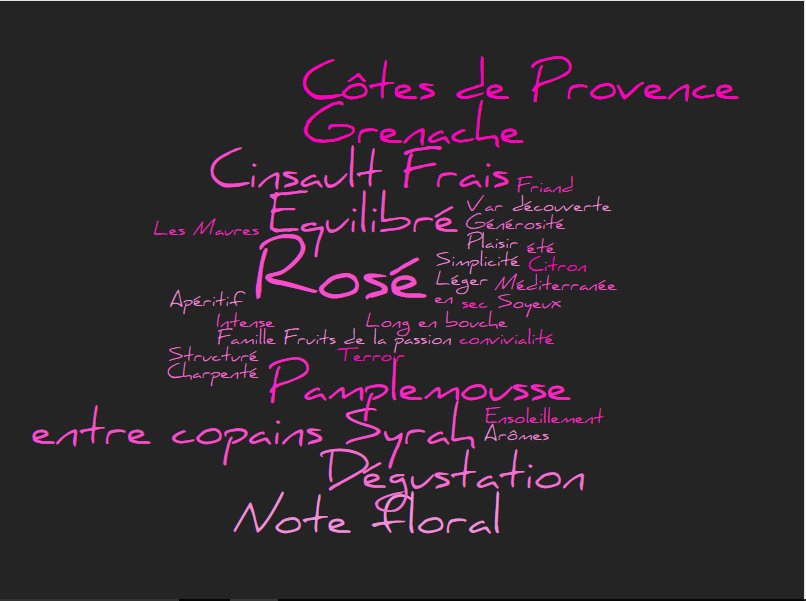 Côtes de Provence
Grenache
Cinsault Frais Friand
Les Maures Equilibré Var découverte
Générosité
Plaisir été
Rosé Simplicité Citron
Léger Méditerranée
Apéritif en sec Soyeux
Intense Long en bouche
Famille Fruits de la passion convivialité
Structuré Terroir
Charpenté Pamplemousse
entre copains Syrah Ensoleillement
Arômes
Dégustation
Note floral